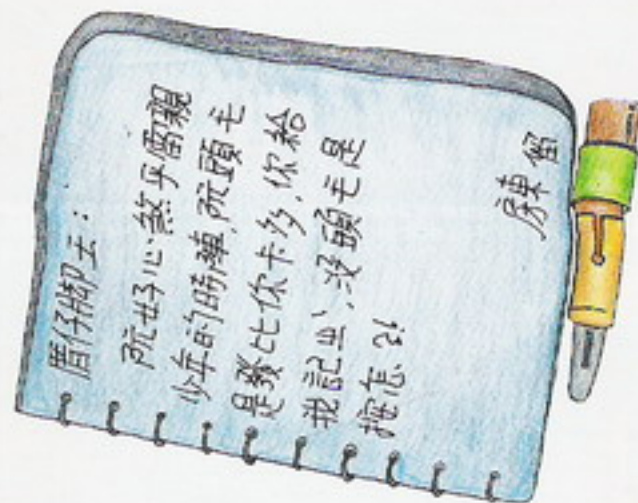 厝仔腳
阮好心煞乎雷親
少年的時陣,阮頭毛
是發比你卡多,你給
我記ㄓ、,沒頭毛是
按怎?!
房東 留